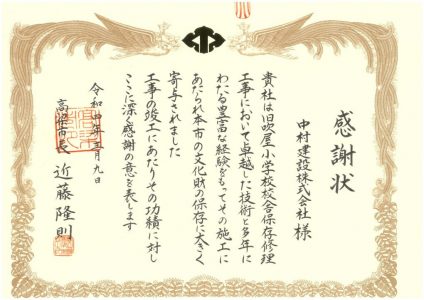 感謝状
中村建設株式会社 様
貴社は旧吹屋小学校校舎保存修理
工事において卓越した技術と多年に
わたる豊富な経験をもってその施工に
あたられ本市の文化財の保存に大きく
寄与されました
工事の竣工にあたりその功績に対し
ここに深く感謝の意を表します
令和四年三月九日
高梁市長 近藤隆則